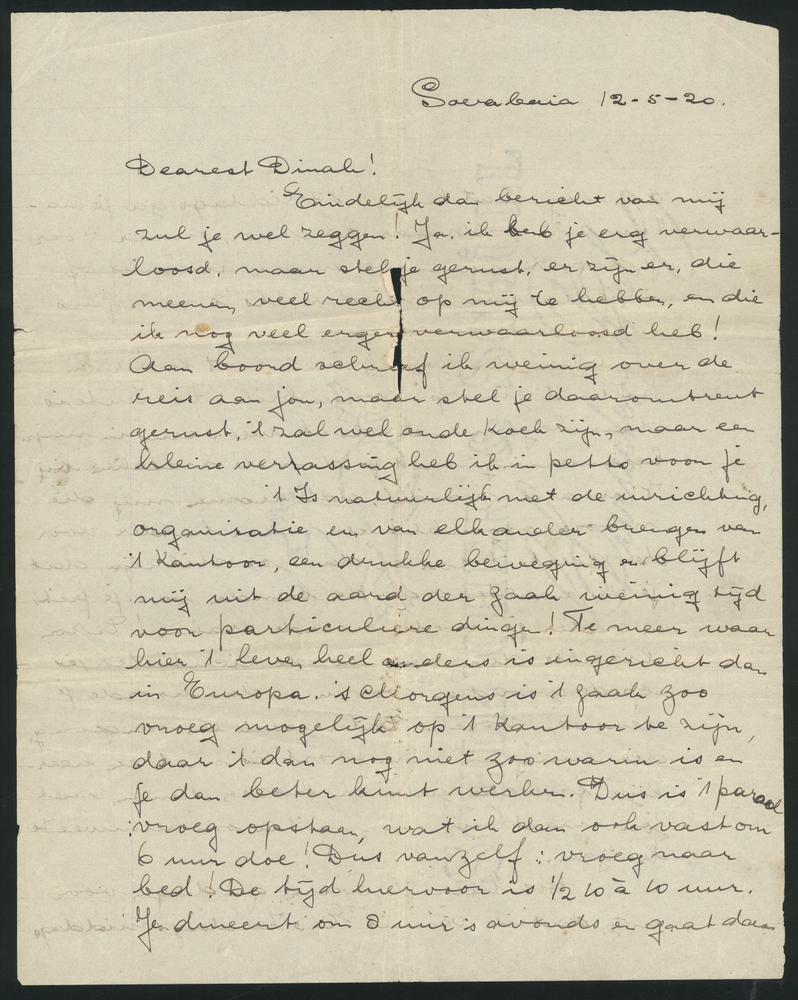 Soerabaia 12-5-20.
Dearest Dinah!
Eindelijk dan bericht van mij
zul je wel zeggen! Ja. ik heb je erg verwaar-
loosd, maar stel je gerust, er zijn er, die
meenen veel recht op mij te hebben, en die
ik nog veel erger verwaarloosd heb!
Aan boord schreef ik weinig over de
reis aan jou, maar stel je daaromtrent
gerust, 't zal wel oude koek zijn, maar een
kleine verrassing heb ik in petto voor je
't Is natuurlijk met de inrichting,
organisatie en van elkander brengen van
't Kantoor, een drukke beweging en blijft
mij uit de aard der zaak weinig tijd
voor particuliere dingen! Te meer waar
hier 't leven heel anders is ingericht dan
in Europa. 's Morgens is 't zaak zoo
vroeg mogelijk op 't Kantoor te zijn,
daar 't dan nog niet zoo warm is en
je dan beter kunt werken. Dus is 't parool
: vroeg opstaan, wat ik dan ook vast om
6 uur doe! Dus vanzelf: vroeg naar
bed! De tijd hiervoor is 1/2 10 à 10 uur.
Je dineert om 8 uur 's avonds en gaat dan